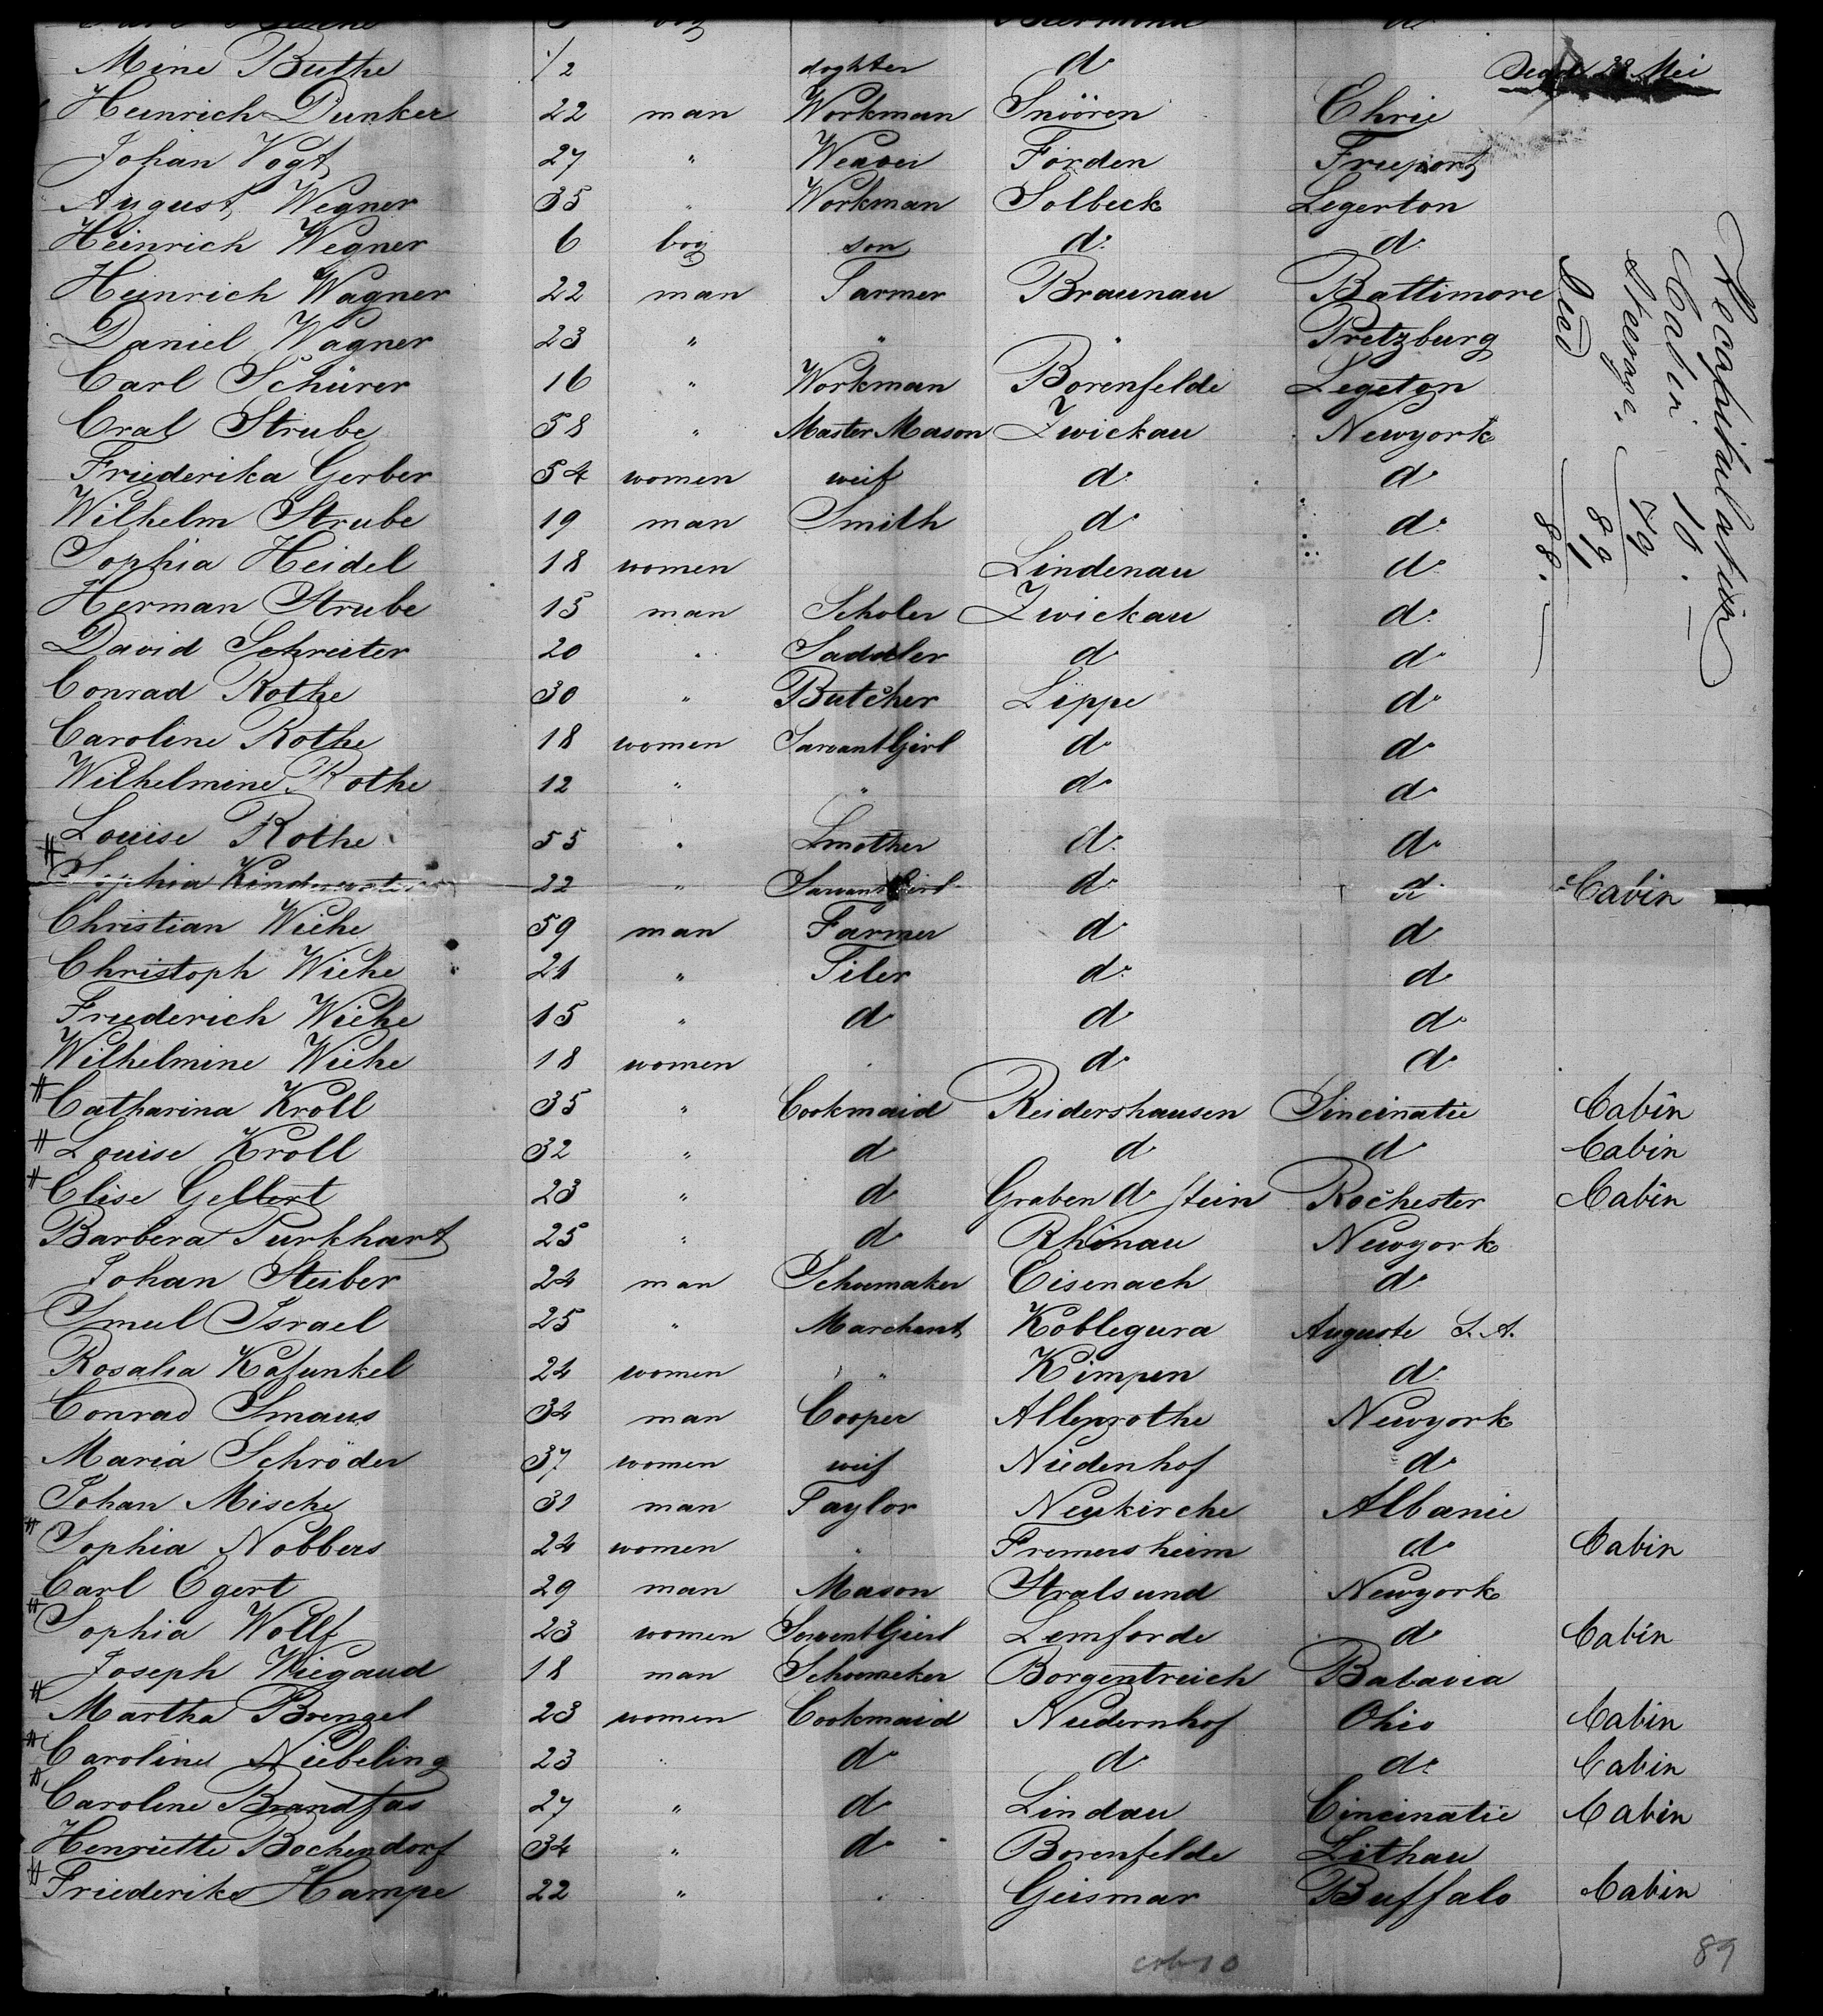 Mine Buthe 1/2 doghter d. Dead 28 Mei
Heinrich Dunker 22 man Workman Snören Ehrie
Johan Vogt 27 " Weaver Förden Freeport
August Wegner 35 " Workman Solbeck Legerton
Heinrich Wegner 6 boy son d. d.
Heinrich Wagner 22 man Farmer Braunau Baltimore
Daniel Wagner 23 " " " Pretzburg
Carl Schürer 16 " Workman Borenfelde Legeton
Cral Strube 58 " Master Mason Zwickau Newyork
Friederika Gerber 54 women weif d. d.
Wilhelm Strube 19 man Smith d. d.
Sophia Heidel 18 women Lindenau d.
Herman Strube 15 man Scholer Zwickau d.
David Schreiter 20 " Saddler d. d.
Conrad Rothe 30 " Butcher Lippe d.
Caroline Rothe 18 women Sarvant Girl d. d.
Wilhelmine Rothe 12 " " d. d.
Louise Rothe 55 " Smother d. d.
# Sophia 22 " Sarvant Girl d. d. Cabin
Christian Wiehe 59 man Farmer d. d.
Christoph Wiehe 21 " Tiler d. d.
Friederich Wiehe 15 " d. d. d.
Wilhelmine Wiehe 18 women . d. d.
# Catharina Kroll 35 " Cookmaid Reidershausen Sincinatie Cabin
# Louise Kroll 32 " d. d. d. Cabin
# Elise Gellert 23 " d. Graben d Stein Rochester Cabin
Barbera Purkhart 25 " d. Rhinau Newyork
Johan Steiber 24 man Schoemaker Eisenach d.
Smul Israel 25 " Marchant Koblegura Auguste S. A.
Rosalia Kafunkel 24 women " Kimpen d.
Conrad Smaus 34 man Cooper Allenrothe Newyork
Maria Schröder 37 women weif Niedenhof d.
Johan Mische 31 man Taylor Neukirche Albanie
# Sophia Nobbers 24 women . Fremersheim d. Cabin
Carl Egert 29 man Mason Stralsund Newyork
# Sophia Wolff 23 women Servent Gierl Lemförde d. Cabin
Joseph Wiegand 18 man Schoemeker Borgentreich Batavia
# Martha Brengel 23 women Cookmaid Niedernhof Ohio Cabin
# Caroline Niebeling 23 " d. d. d. Cabin
# Caroline Brandfas 27 " d. Lindau Cincinatie Cabin
Henriette Bochendorf 34 " d. Borenfelde Lithau
# Friederike Hampe 22 " . Geismar Buffalo Cabin
Recapitulation
Cabin. 10.
Steerage. 79
89
Died 1
88.
89